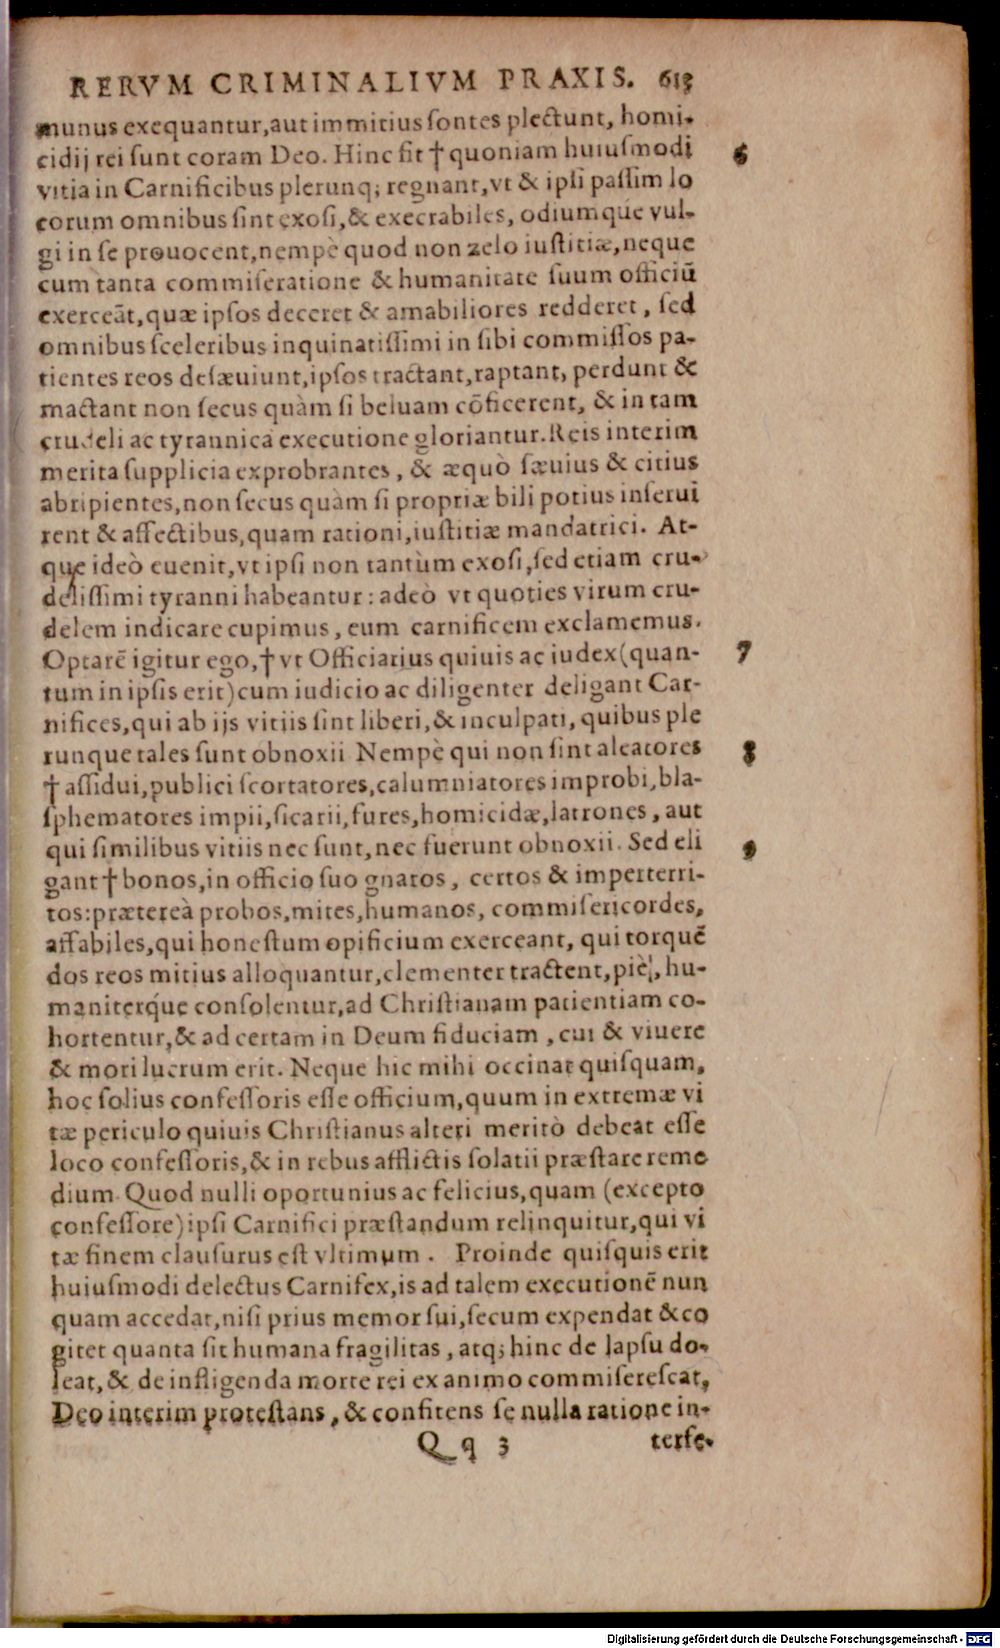 RERVM CRIMINALIVM PRAXIS. 613
munus exequantur,aut immitius ſontes plectunt, homi-
cidij rei ſunt coram Deo. Hinc fit † quoniam huiuſmodi 6
vitia in Carnificibus plerunq; regnant,vt & ipſi paſſim lo
corum omnibus ſint exoſi,& execrabiles, odiumque vul-
gi in ſe prouocent,nempè quod non zelo iuſtitiæ,neque
cum tanta commiſeratione & humanitate ſuum officiũ
exerceãt,quæ ipſos deceret & amabiliores redderet, ſed
omnibus ſceleribus inquinatiſſimi in ſibi commiſſos pa-
tientes reos deſæuiunt,ipſos tractant,raptant, perdunt &
mactant non ſecus quàm ſi beluam cõficerent, & in tam
crudeli ac tyrannica executione gloriantur.Reis interim
merita ſupplicia exprobrantes, & æquò ſæuius & citius
abripientes,non ſecus quàm ſi propriæ bili potius inſerui
rent & affectibus,quam rationi,iuſtitiæ mandatrici. At-
que ideò euenit,vt ipſi non tantùm exoſi,ſed etiam cru-
deliſſimi tyranni habeantur: adeò vt quoties virum cru-
delem indicare cupimus, eum carnificem exclamemus.
Optarẽ igitur ego,† vt Officiarius quiuis ac iudex(quan- 7
tum in ipſis erit)cum iudicio ac diligenter deligant Car-
nifices,qui ab ijs vitiis ſint liberi,& inculpati, quibus ple
runque tales ſunt obnoxii Nempè qui non ſint aleatores 8
† aſſidui,publici ſcortatores,calumniatores improbi,bla-
ſphematores impii,ſicarii,fures,homicidæ,latrones, aut
qui ſimilibus vitiis nec ſunt,nec fuerunt obnoxii. Sed eli 9
gant † bonos,in officio ſuo gnaros, certos & imperterri-
tos:prætereà probos,mites,humanos, commiſericordes,
affabiles,qui honeſtum opificium exerceant, qui torquẽ
dos reos mitius alloquantur,clementer tractent,piè, hu-
maniterq́ue conſolentur,ad Chriſtianam patientiam co-
hortentur,& ad certam in Deum fiduciam, cui & viuere
& mori lucrum erit. Neque hic mihi occinat quiſquam,
hoc ſolius confeſſoris eſſe officium,quum in extremæ vi
tæ periculo quiuis Chriſtianus alteri meritò debeat eſſe
loco confeſſoris,& in rebus afflictis ſolatii præſtare reme
dium. Quod nulli oportunius ac felicius,quam (excepto
confeſſore) ipſi Carnifici præſtandum relinquitur,qui vi
tæ finem clauſurus eſt vltimum. Proinde quiſquis erit
huiuſmodi delectus Carnifex,is ad talem executionẽ nun
quam accedat,niſi prius memor ſui,ſecum expendat & co
gitet quanta ſit humana fragilitas, atq; hinc de lapſu do-
leat,& de infligenda morte rei ex animo commiſereſcat,
Deo interim proteſtans, & confitens ſe nulla ratione in-
Qq 3 terfe-
Digitalisierung gefördert durch die Deutsche Forschungsgemeinschaft - DFG